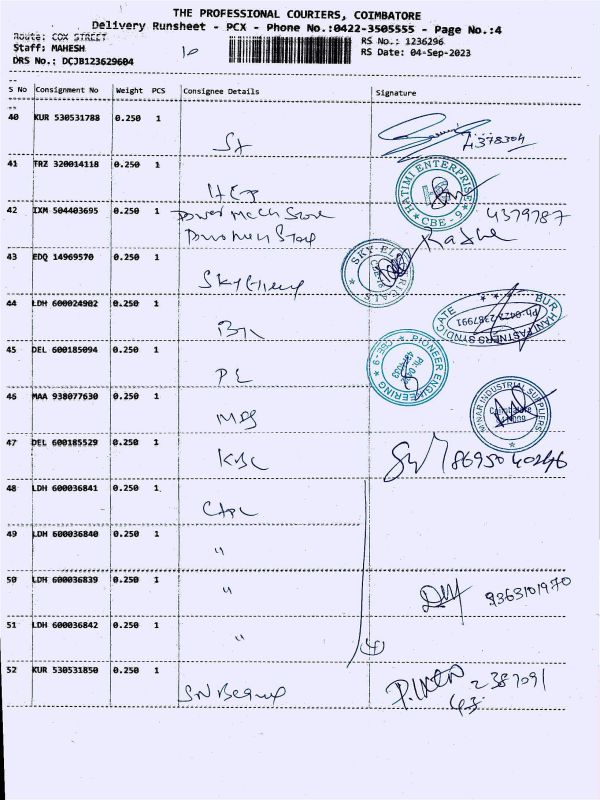 THE PROFESSIONAL COURIERS, COIMBATORE
Delivery Runsheet - PCX - Phone No.:0422-3505555 - Page No.:4
Route: COX STREET
RS No.: 1236296
Staff: MAHESH
10
RS Date: 04-Sep-2023
DRS No.: DCJB123629604
S No Consignment No Weight PCS Consignee Details Signature
40 KUR 530531788 0.250 1
4378304
41 TRZ 320014118 0.250 1
HATIMI ENTERPRISE
* CBE - 9 *
42 IXM 504403695 0.250 1 Power Mech Store
4379787
43 EDQ 14969570 0.250 1
44 LDH 600024902 0.250 1
BURHANI FASTNERS SYNDICATE
Ph-0422-2387991
45 DEL 600185094 0.250 1 PE
* PIONEER ENGINEERING * CBE-9
46 MAA 938077630 0.250 1
MINAR INDUSTRIAL SUPPLIERS
Coimbatore
47 DEL 600185529 0.250 1 KBC
48 LDH 600036841 0.250 1
49 LDH 600036840 0.250 1 "
50 LDH 600036839 0.250 1 "
9363101970
51 LDH 600036842 0.250 1 "
4
52 KUR 530531850 0.250 1
2387091